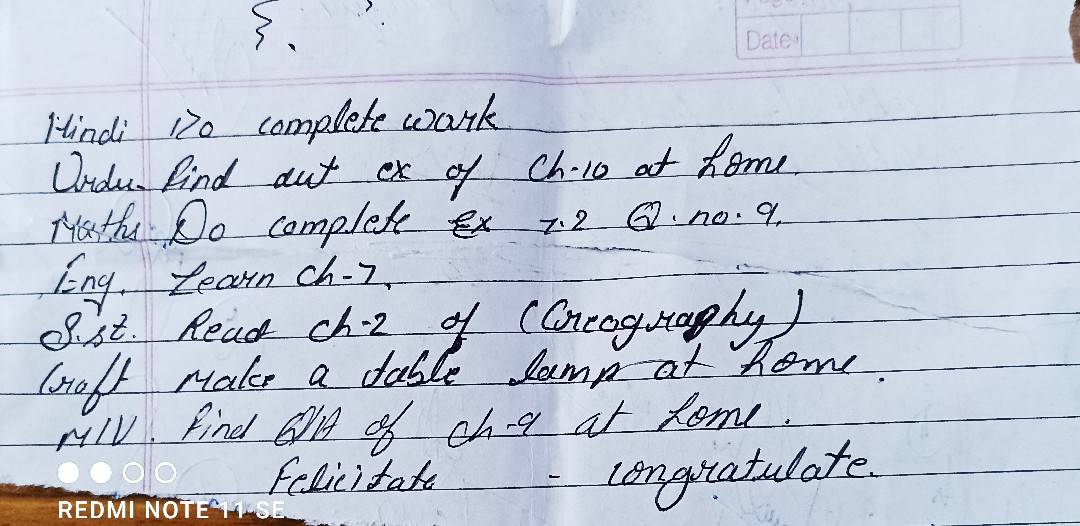 Date
Hindi Do complete work
Urdu. find out ex of Ch-10 at home.
Maths: Do complete Ex 7.2 Q. no. 9.
Eng. Learn ch-7.
S.st. Read ch-2 of (Greography)
Craft Make a table lamp at home.
M/V. find Q/A of ch-9 at home.
Felicitate - congratulate.
REDMI NOTE 11 SE